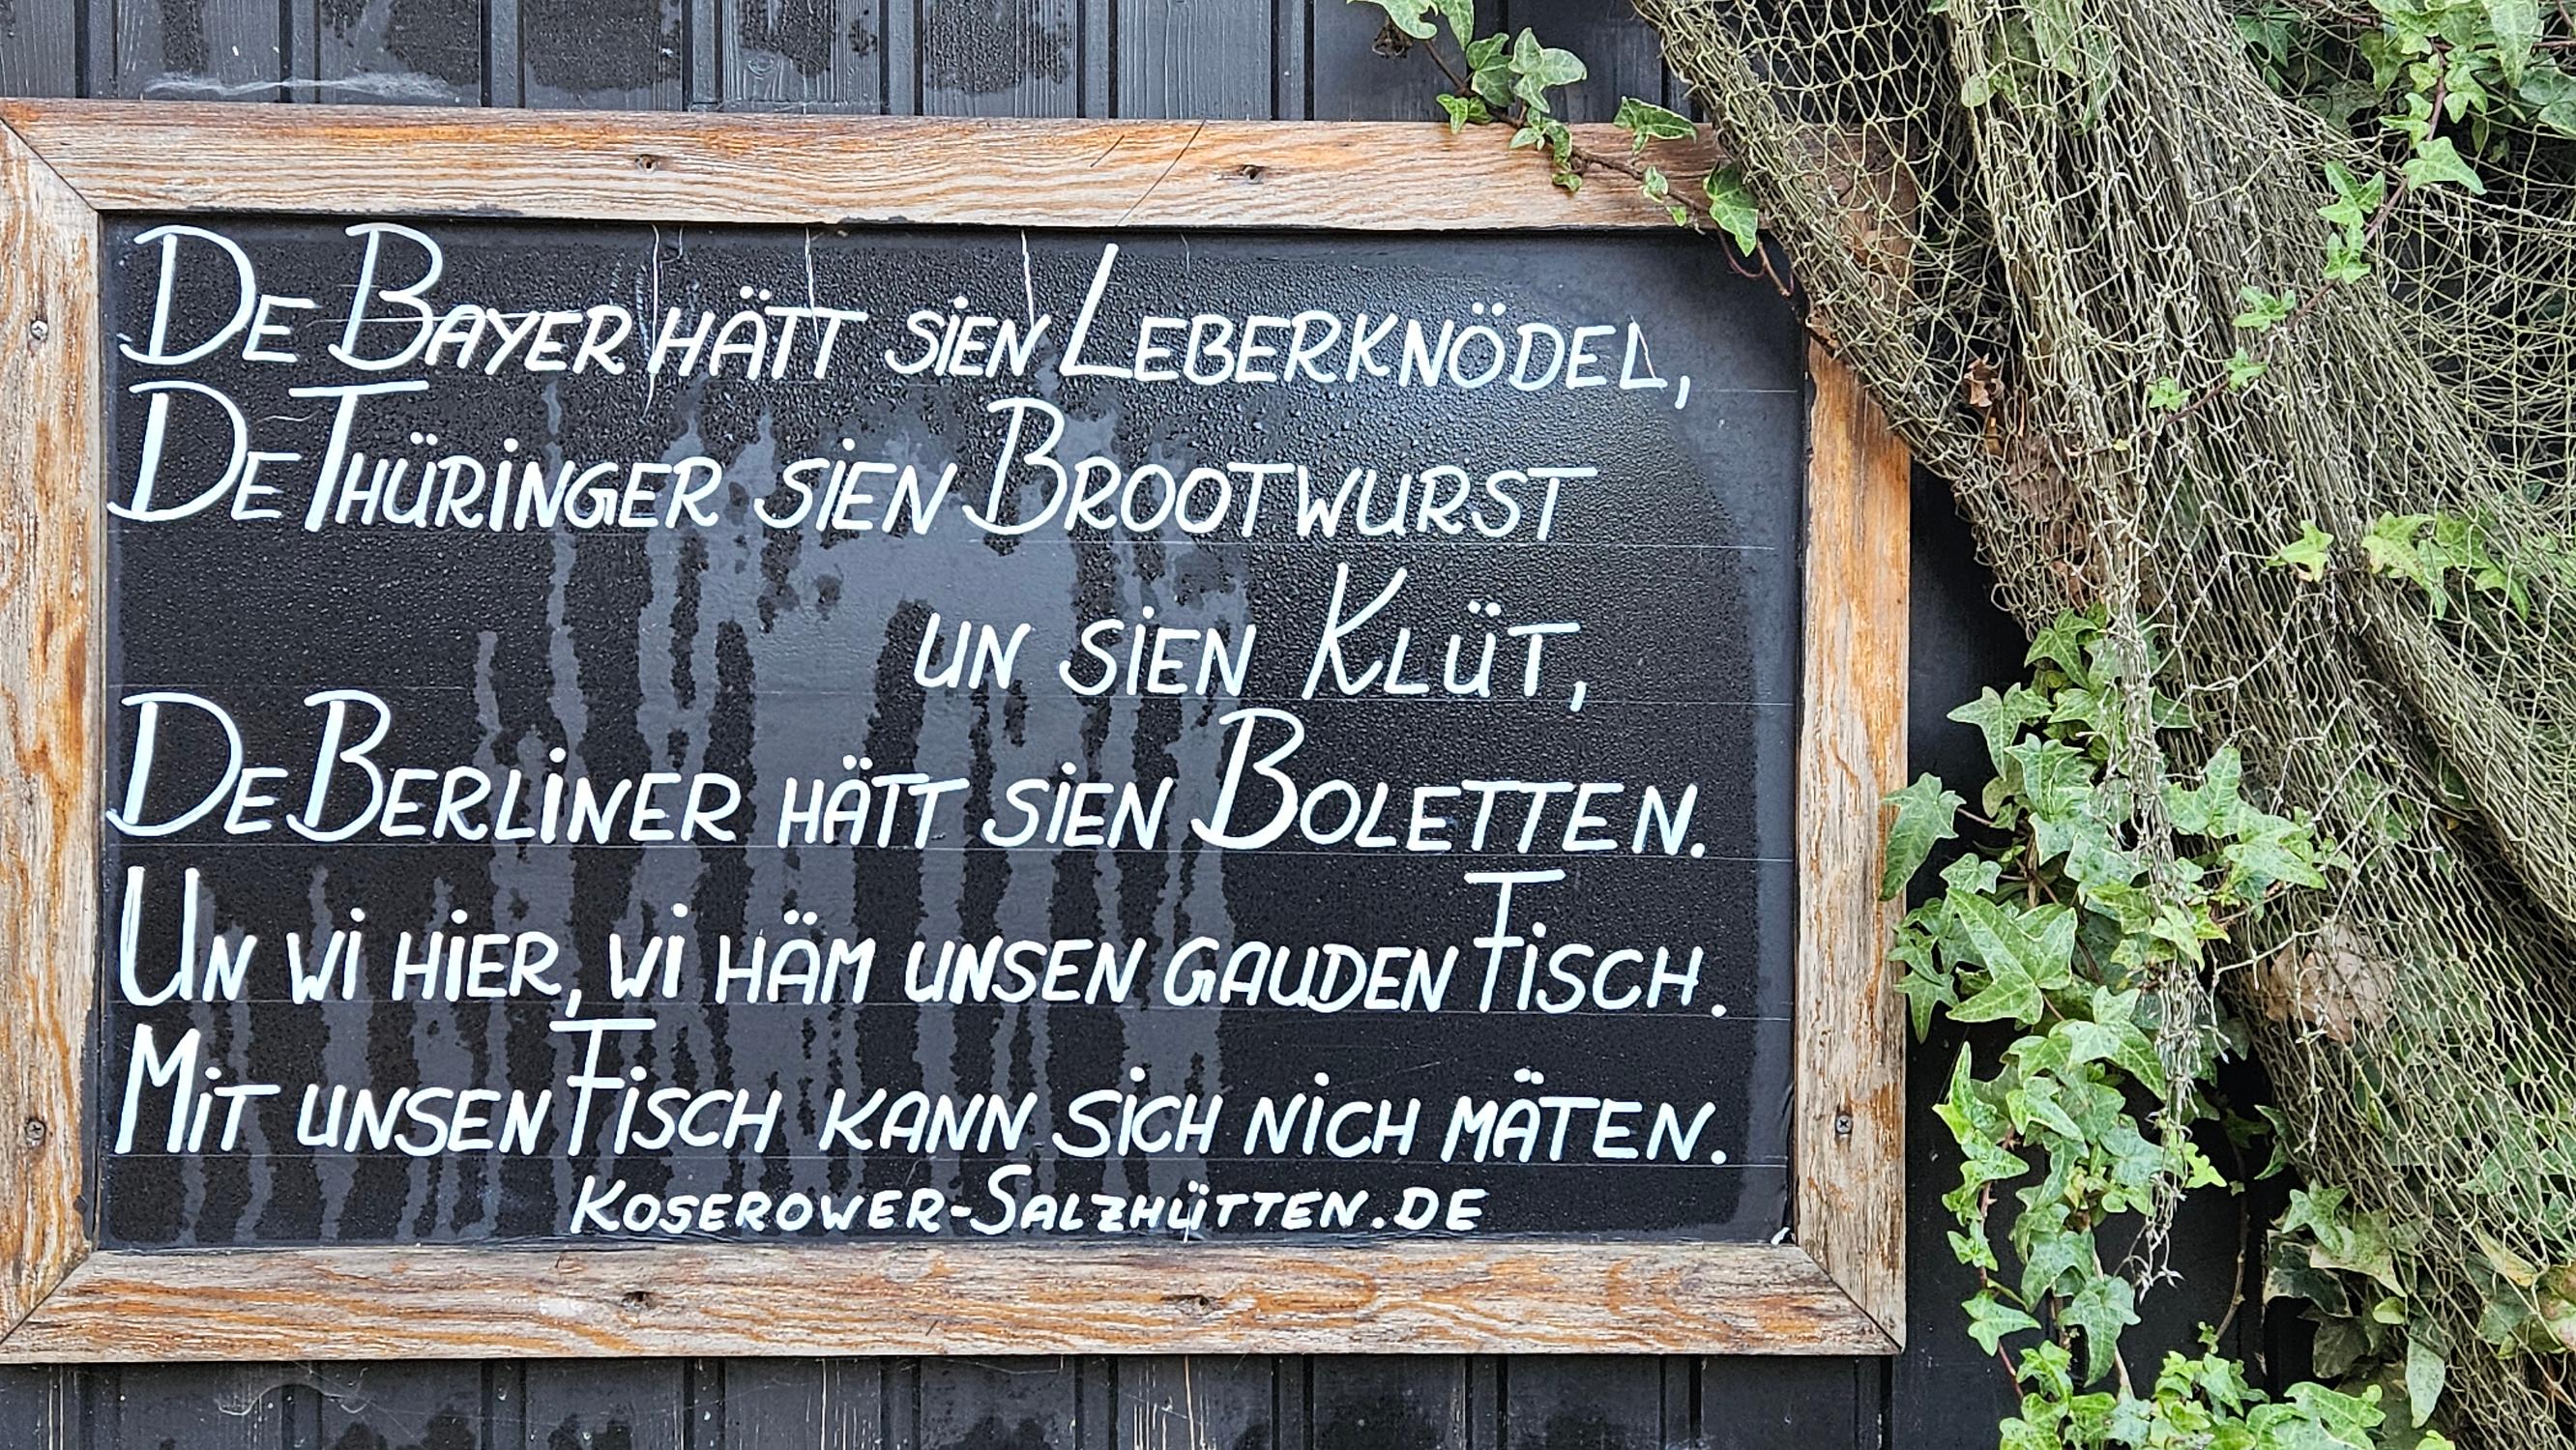 De Bayer hätt sien Leberknödel,
De Thüringer sien Brootwurst
un sien Klüt,
De Berliner hätt sien Boletten.
Un wi hier, wi häm unsen gauden Fisch.
Mit unsen Fisch kann sich nich mäten.
Koserower-Salzhütten.de